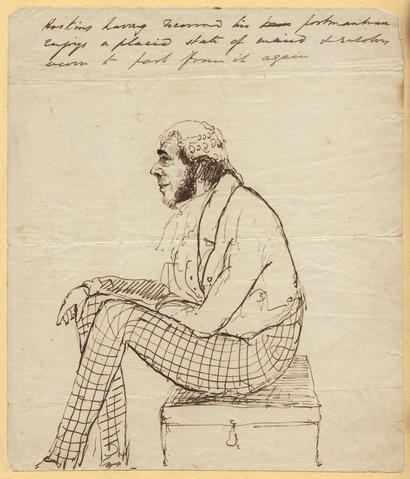 Hoskins having recovered his portmanteau
enjoys a placid state of mind & resolves
never to part from it again